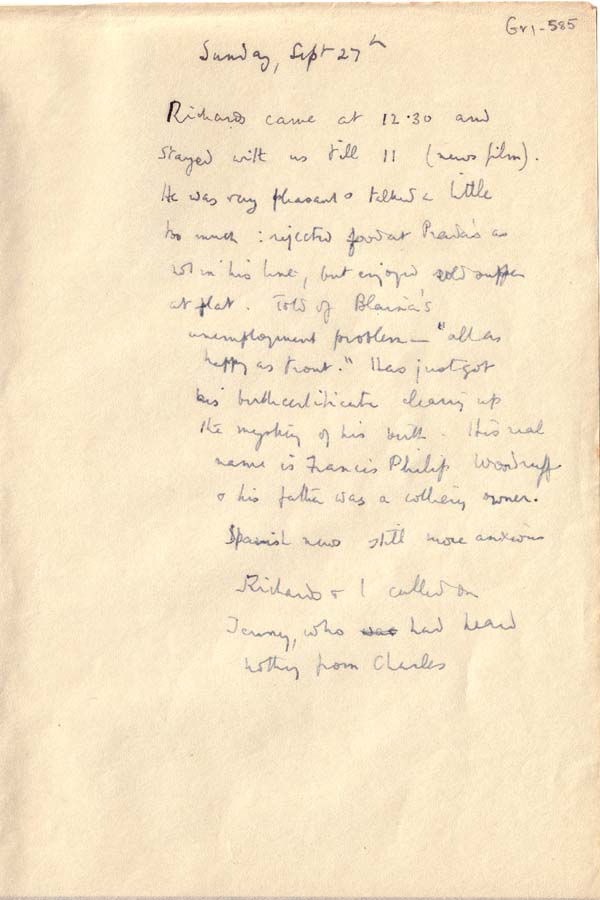 Gr1-585
Sunday, Sept 27th
Richards came at 12.30 and
stayed with us till 11 (news film).
He was very pleasant & talked a little
too much : rejected food at Prada's as
not in his line, but enjoyed cold supper
at flat. Told of Blaina's
unemployment problem — "all as
happy as trout." Has just got
his birthcertificate clearing up
the mystery of his birth. His real
name is Francis Philip Woodruff
& his father was a colliery owner.
Spanish news still more anxious
Richards & I called on
Jenny, who was had heard
nothing from Charles